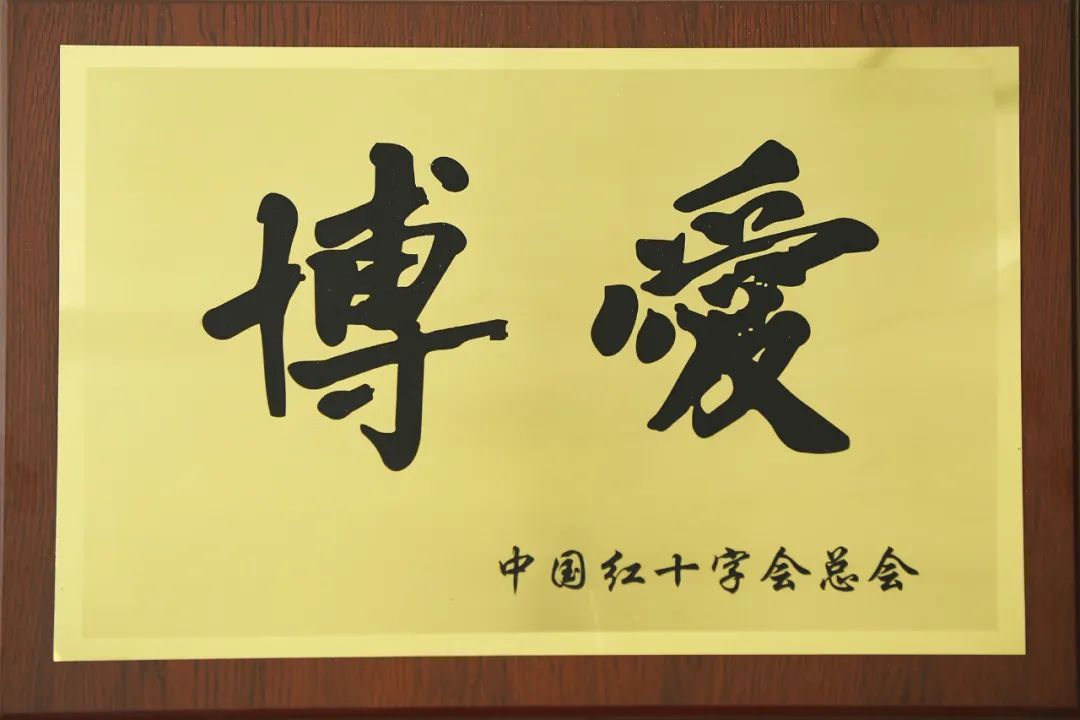 博愛
中国红十字会总会